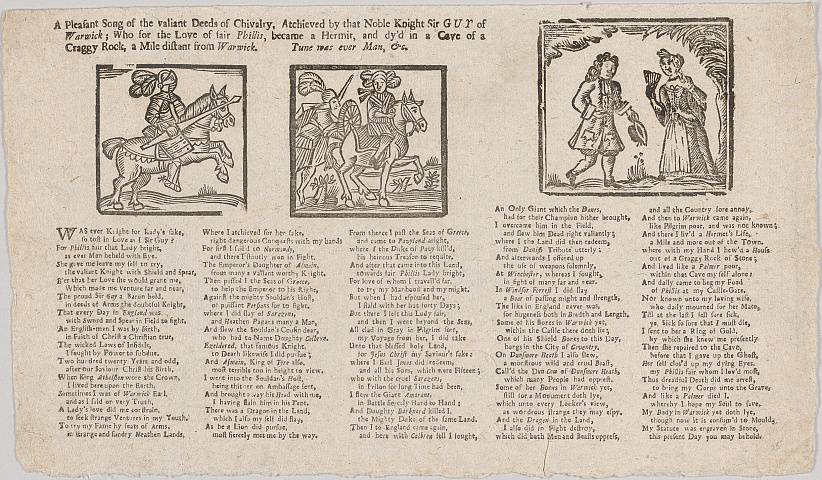 A Pleasant Song of the valiant Deeds of Chivalry, Atchieved by that Noble Knight Sir GUY of
Warwick; Who for the Love of fair Phillis, became a Hermit, and dy'd in a Cave of a
Craggy Rock, a Mile distant from Warwick. Tune was ever Man, &c.
WAs ever Knight for Lady's sake,
so tost in Love as I Sir Guy?
For Phillis fair that Lady bright,
as ever Man beheld with Eye.
She gave me leave my self to try,
the valiant Knight with Shield and Spear,
E'er that her Love she would grant me,
Which made me venture far and near,
The proud Sir Guy a Baron bold,
in deeds of Arms the doubtful Knight,
That every Day in England was
with Sword and Spear in Field to fight.
An English-men I was by Birth,
in Faith of Christ a Christian true,
The wicked Laws of Infidels,
I sought by Power to subdue,
Two hundred twenty Years and odd,
after our Saviour Christ his Birth,
When King Athelston wore the Crown,
I lived here upon the Earth,
Sometimes I was of Warwick Earl,
and as I said on very Truth,
A Lady's love did me constrain,
to seek strange Ventures in my Youth.
To try my Fame by feats of Arms,
in strange and sundry Heathen Lands,
Where I atchieved for her sake,
right dangerous Conquests with my hands
For first I sail'd to Normandy,
and there I stoutly won in Fight,
The Emperor's Daughter of Almain,
from many a valiant worthy Knight.
Then passed I the Seas of Greece,
to help the Emperor to his Right,
Against the mighty Souldan's Host,
of puissant Persians for to fight.
where I did slay of Sarazens,
and Heathen Pagans many a Man,
And slew the Souldan's Cousin dear,
who had to Name Doughty Colbron.
Ezeldered, that famous Knight,
to Death likewise I did pursue;
And Almain, King of Tyre also,
most terrible too in height to view,
I went into the Souldan's Host,
being thither on Ambassage sent,
And brought away his Head with me,
I having slain him in his Tent.
There was a Dragon in the Land,
which I also my self did slay,
As he a Lion did pursue,
most fiercely met me by the way.
From thence I past the Seas of Greece,
and came to Pavyland aright,
where I the Duke of Pavy kill'd,
his heinous Treason to requite,
And after that came into this Land,
towards fair Phillis Lady bright,
For love of whom I travail'd far,
to try my Manhood and my might,
But when I had espoused her,
I staid with her but forty Days;
But there I left this Lady fair,
and then I went beyond the Seas,
All clad in Gray in Pilgrim sort,
my Voyage from her, I did take
Unto that blessed holy Land,
for Jesus Christ my Saviour's sake:
where I Earl Jonas did redeem,
and all his Sons, which were Fifteen;
who with the cruel Sarazens,
in Prison for long time had been,
I slew the Giant Amarant,
in Battle fiercely Hand to Hand;
And Doughty Barknard killed I,
the Mighty Duke of the same Land.
Then I to England came again,
and here with Colbron fell I fought,
An Only Giant which the Danes,
had for their Champion hither brought,
I overcame him in the Field,
and slew him Dead right valiantly;
where I the Land did then redeem,
from Danish Tribute utterly;
And afterwards I offered up
the use of weapons solemnly,
At Winchester, whereas I fought,
in sight of many far and near.
In Windsor Forrest I did slay
a Boar of passing might and strength,
The like in England never was,
for hugeness both in Bredth and Length,
Some of his Bones in Warwick yet,
within the Castle there doth lie;
One of his Shield Bones to this Day,
hangs in the City of Coventry,
On Dunsmore Heath I also slew,
a monstrous wild and cruel Beast,
Call'd the Dun Cow of Dunsmore Heath,
which many People had opprest.
Some of her Bones in Warwick yet,
still for a Monument doth lye,
which unto every Looker's view,
as wondrous strange they may espy.
And the Dragon in the Land,
I also did in Fight destroy,
which did both Men and Beasts oppress,
and all the Country sore annoy.
And then to Warwick came again,
like Pilgrim poor, and was not known;
And there I liv'd a Hermet's Life,
a Mile and more out of the Town.
where with my Hand I hew'd a House
out of a Craggy Rock of Stone;
And lived like a Palmer poor,
within that Cave my self alone:
And daily came to beg my Food
of Phillis at my Castle-Gate.
Nor known unto my loving wife,
who daily mourned for her Mate,
Till at the last I fell sore sick,
ye, Sick so sore that I must die,
I sent to her a Ring of Gold,
by which she knew me presently.
Then she repaired to the Cave,
before that I gave up the Ghost,
Her self clos'd up my dying Eyes,
my Phillis fair whom I lov'd most,
Thus dreadful Death did me arrest,
to bring my Corps unto the Grave,
And like a Palmer died I,
whereby I hope my Soul to save.
My Body in Warwick yet doth lye,
though now it is consum'd to Mould;
My Statue was engraven in Stone,
this present Day you may behold.